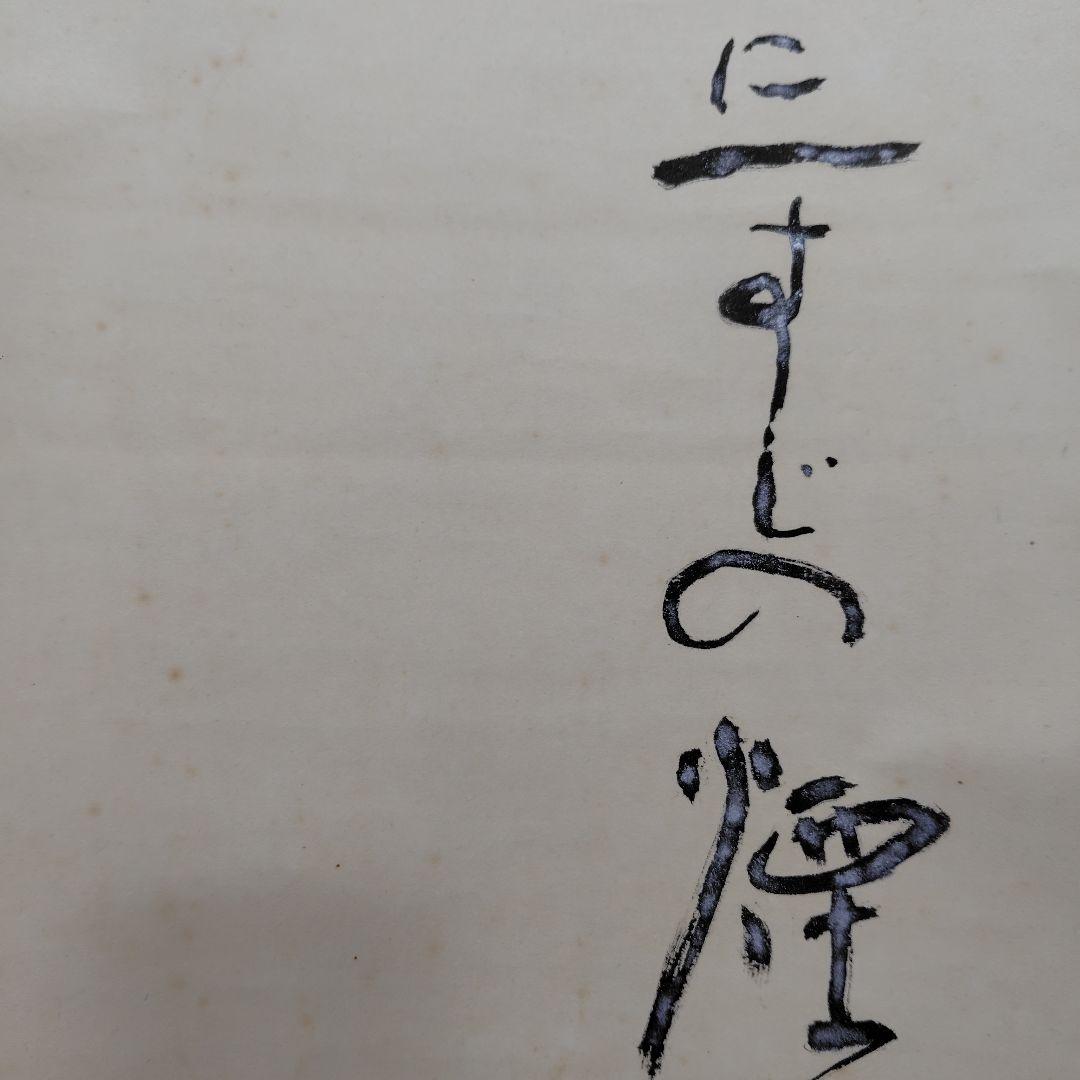 に一すじの煙